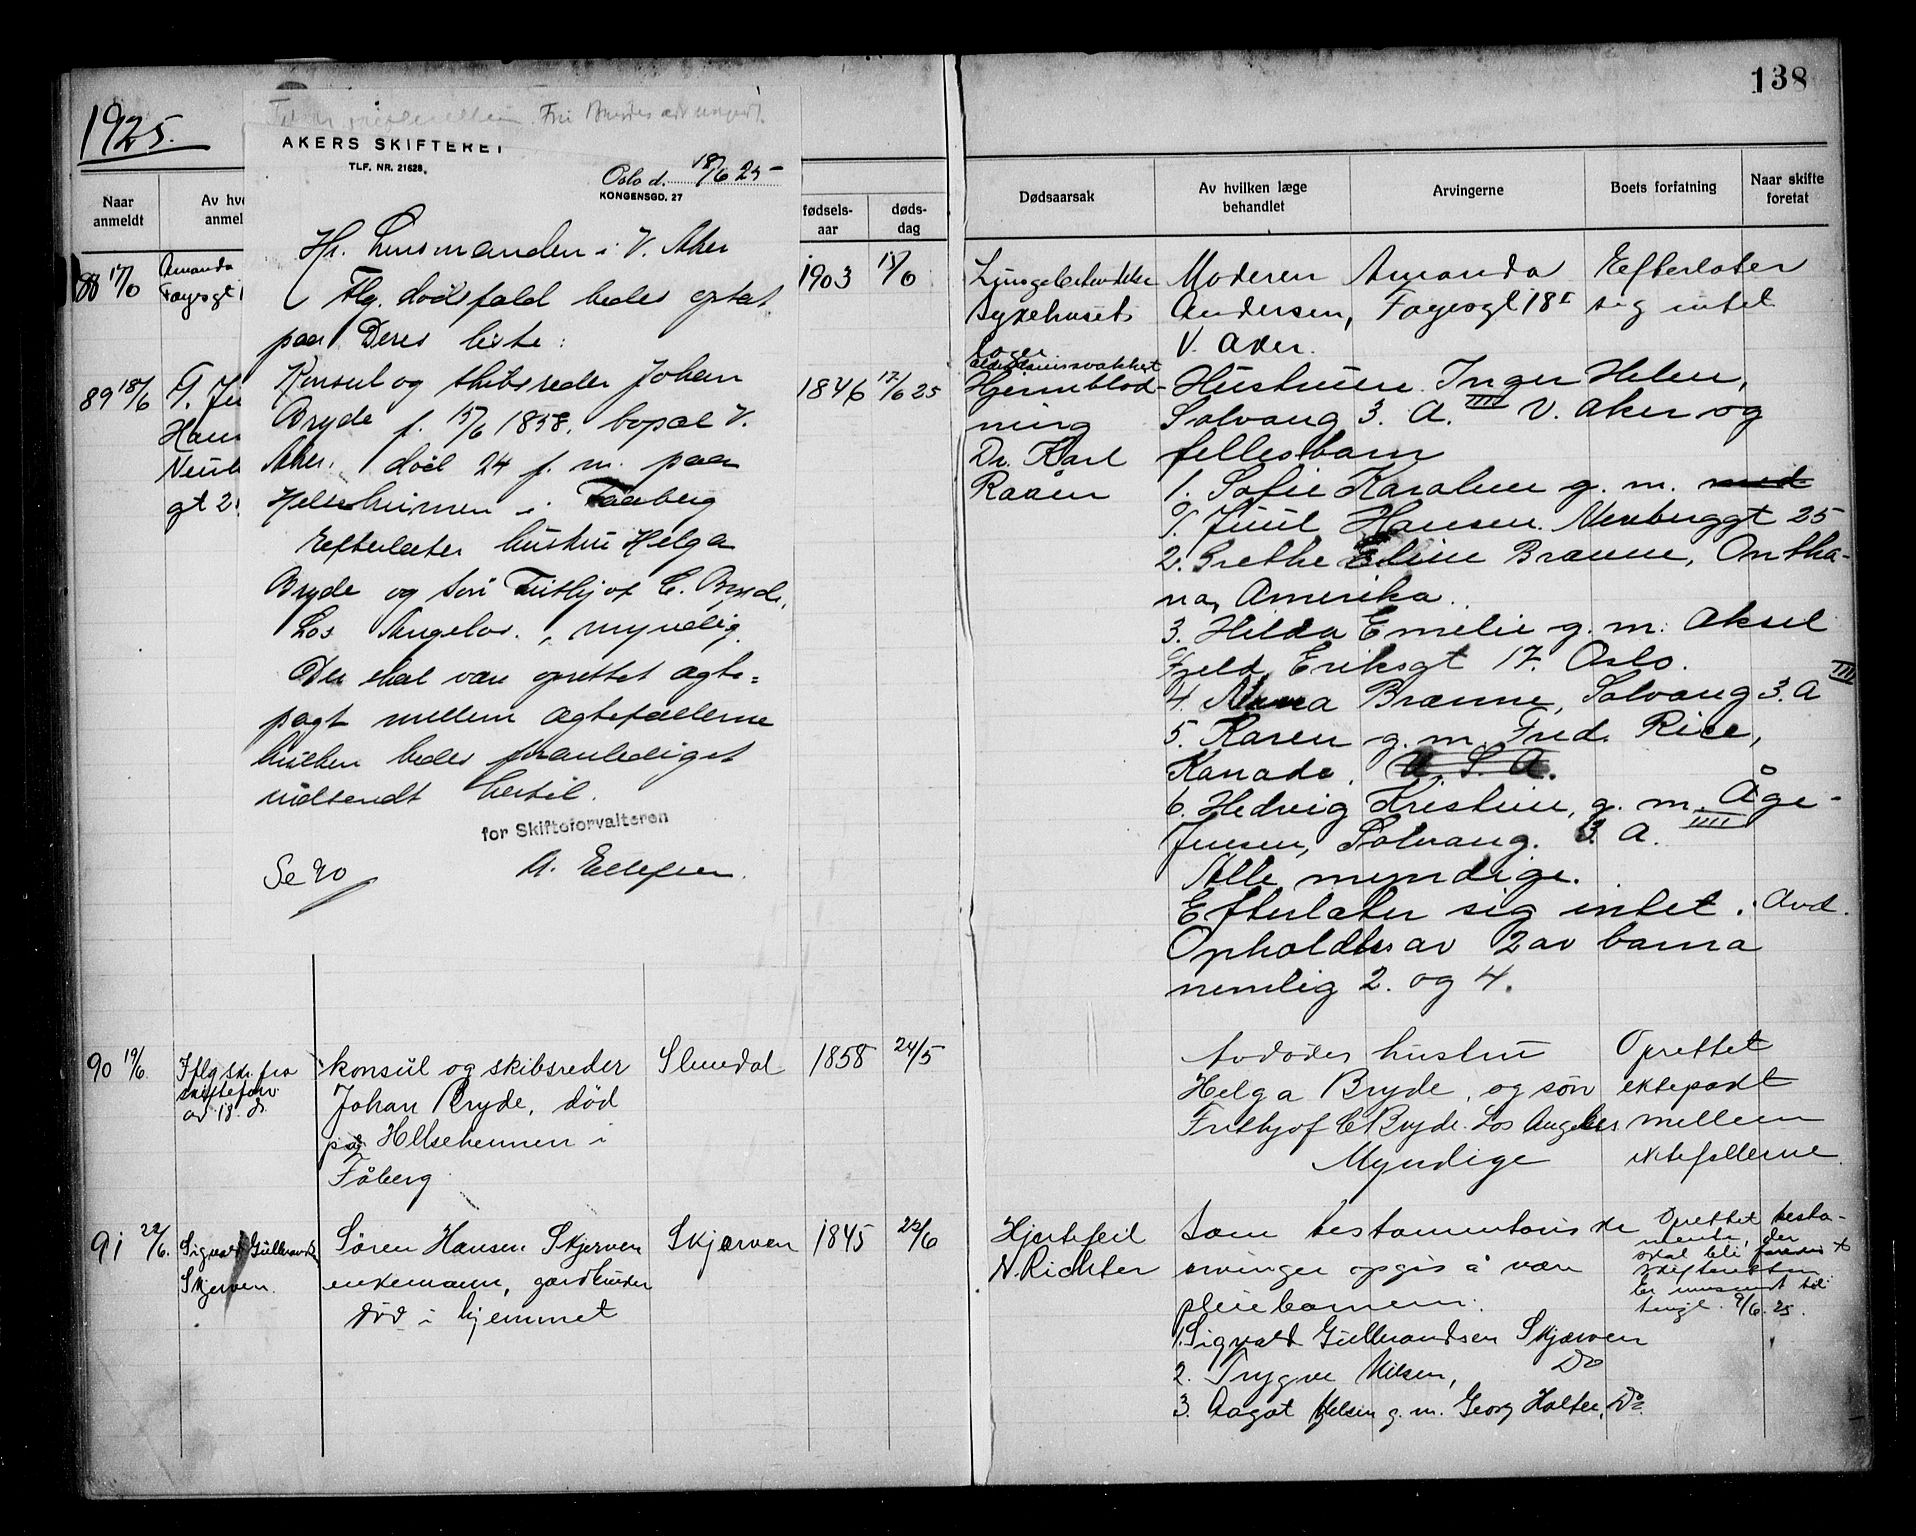 1925.
138
AKERS SKIFTERET
TLF. NR. 21628.
Oslo d. 18/6 25
KONGENSGD. 27
Hr. Lensmanden i V. Aker
Flg. dødsfald bedes optat
paa Deres liste:
Konsul og skibsreder Johan
Bryde f. 15/6 1858. bopæl V.
Aker. død 24 f. m. paa
Helseheimen i Faaberg
Efterlater hustru Helga
Bryde og søn Frithjof C. Bryde,
Los Angelos, myndig.
Der skal være oprettet ægte=
pagt mellem ægtefællerne
hvilken bedes foranlediget
indsendt hertil.
for Skifteforvalteren
A. Ellefsen.
Se 90
Naar anmeldt
Av hv
anmel
fødsels-aar
døds-dag
Dødsaarsak
Av hvilken læge behandlet
Arvingerne
Boets forfatning
Naar skifte foretat
88 17/6
Amanda
Fagesgt 1
1903
15/6
Lungebetendelse
sykehuset
Moderen Amanda
Andersen, Fagesgt 18 I
V. Aker.
Eefterlater
sig intet
89 18/6
T. Ju
Hans
Neub
gt 2
1846
17/6 25
alderdomssvakhet
Hjerneblød-
ning
Dr. Karl
Raaen
Hustruen Inger Helen,
Solvang 3. A. IIII V. Aker og
fellesbarn
1. Sofie Karoline g. m. med
T. Juul Hansen. Neubergt 25
2. Grethe Eline Brænne, Ontha-
na, Amerika.
3. Hilda Emelie g. m. Aksel
Fjeld, Eriksgt 17. Oslo.
4. Nanna Brænne, Solvang 3. A IIII
5. Karen g. m. Fred. Rice,
Kanada. U. S. A.
6. Hedvig Kristine, g. m. Åge
Jensen, Solvang. 3 A. IIII
Alle myndige.
Efterlater sig intet. Avd.
Opholdtes av 2 av barna
nemlig 2. og 4.
90 19/6.
Iflg skr. fra
skifteforv
av 18. ds.
konsul og skibsreder
Johan Bryde, død
på Helseheimen i
Fåberg
Slemdal
1858
24/5
Avdødes hustru
Helga Bryde, og søn
Frithjof C Bryde. Los Angeles
Myndige
Oprettet
ektepakt
mellem
ektefellerne
91 22/6.
Sigvald Gulbrands
Skjerven.
Søren Hansen Skjerven
enkemann, gardbruker
død i hjemmet
Skjerven
1845
22/6
Hjertefeil
N. Richter
Som testamentariske
arvinger opgis å være
pleiebarnene:
1. Sigvald Gulbrandsen Skjærven
2. Trygve Nilsen, Do
3. Aagot Nilsen g. m. Georg Holter, Do.
Oprettet testa-
mente, der
skal bli
skifteretten
Er innsendt til
9/6. 25.